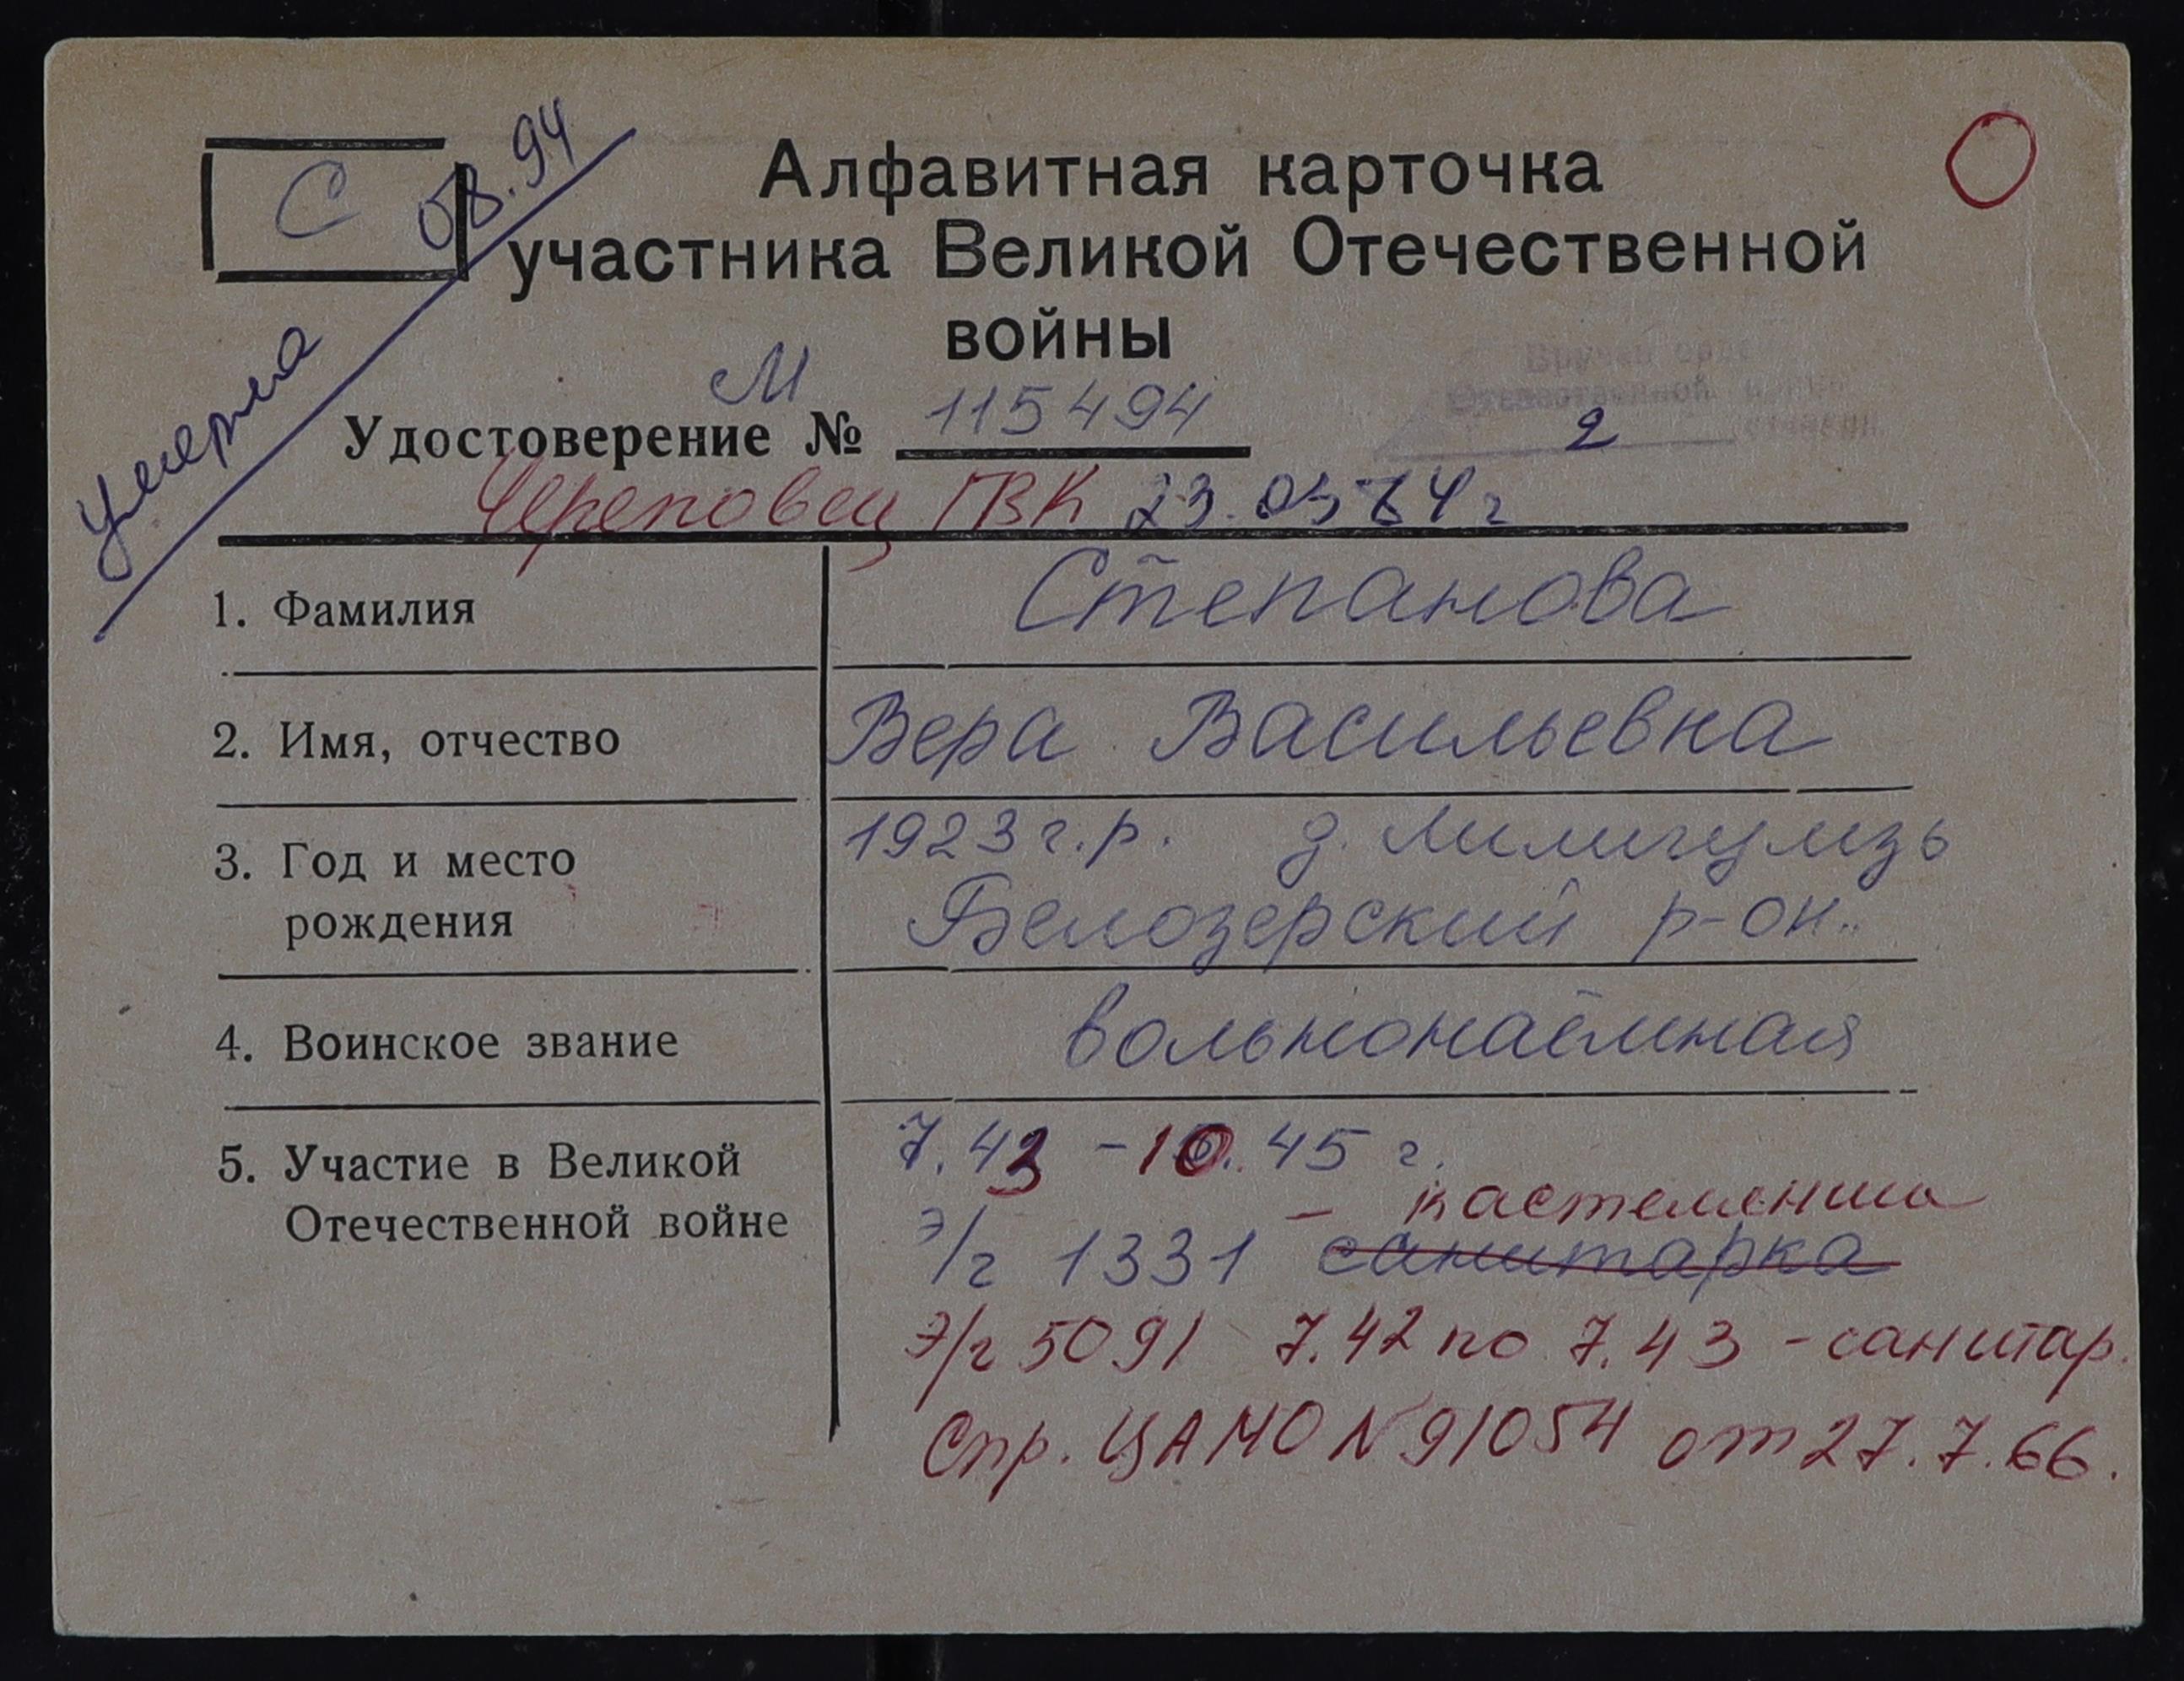 С
08.94
умерла
Алфавитная карточка
участника Великой Отечественной
войны
М
Удостоверение № 115494
Отечественной
2
Череповец ГВК
1. Фамилия Степанова
2. Имя, отчество Вера Васильевна
3. Год и место 1923 г.р. д.
рождения Белозерский р-он.
4. Воинское звание вольнонаёмная
5. Участие в Великой 7.43 - 10.45 г.
- кастелянша
Отечественной войне э/г 1331 санитарка
э/г 5091 7.42 по 7.43 - санитар.
Спр. ЦАМО N 91054 от 27.7.66.